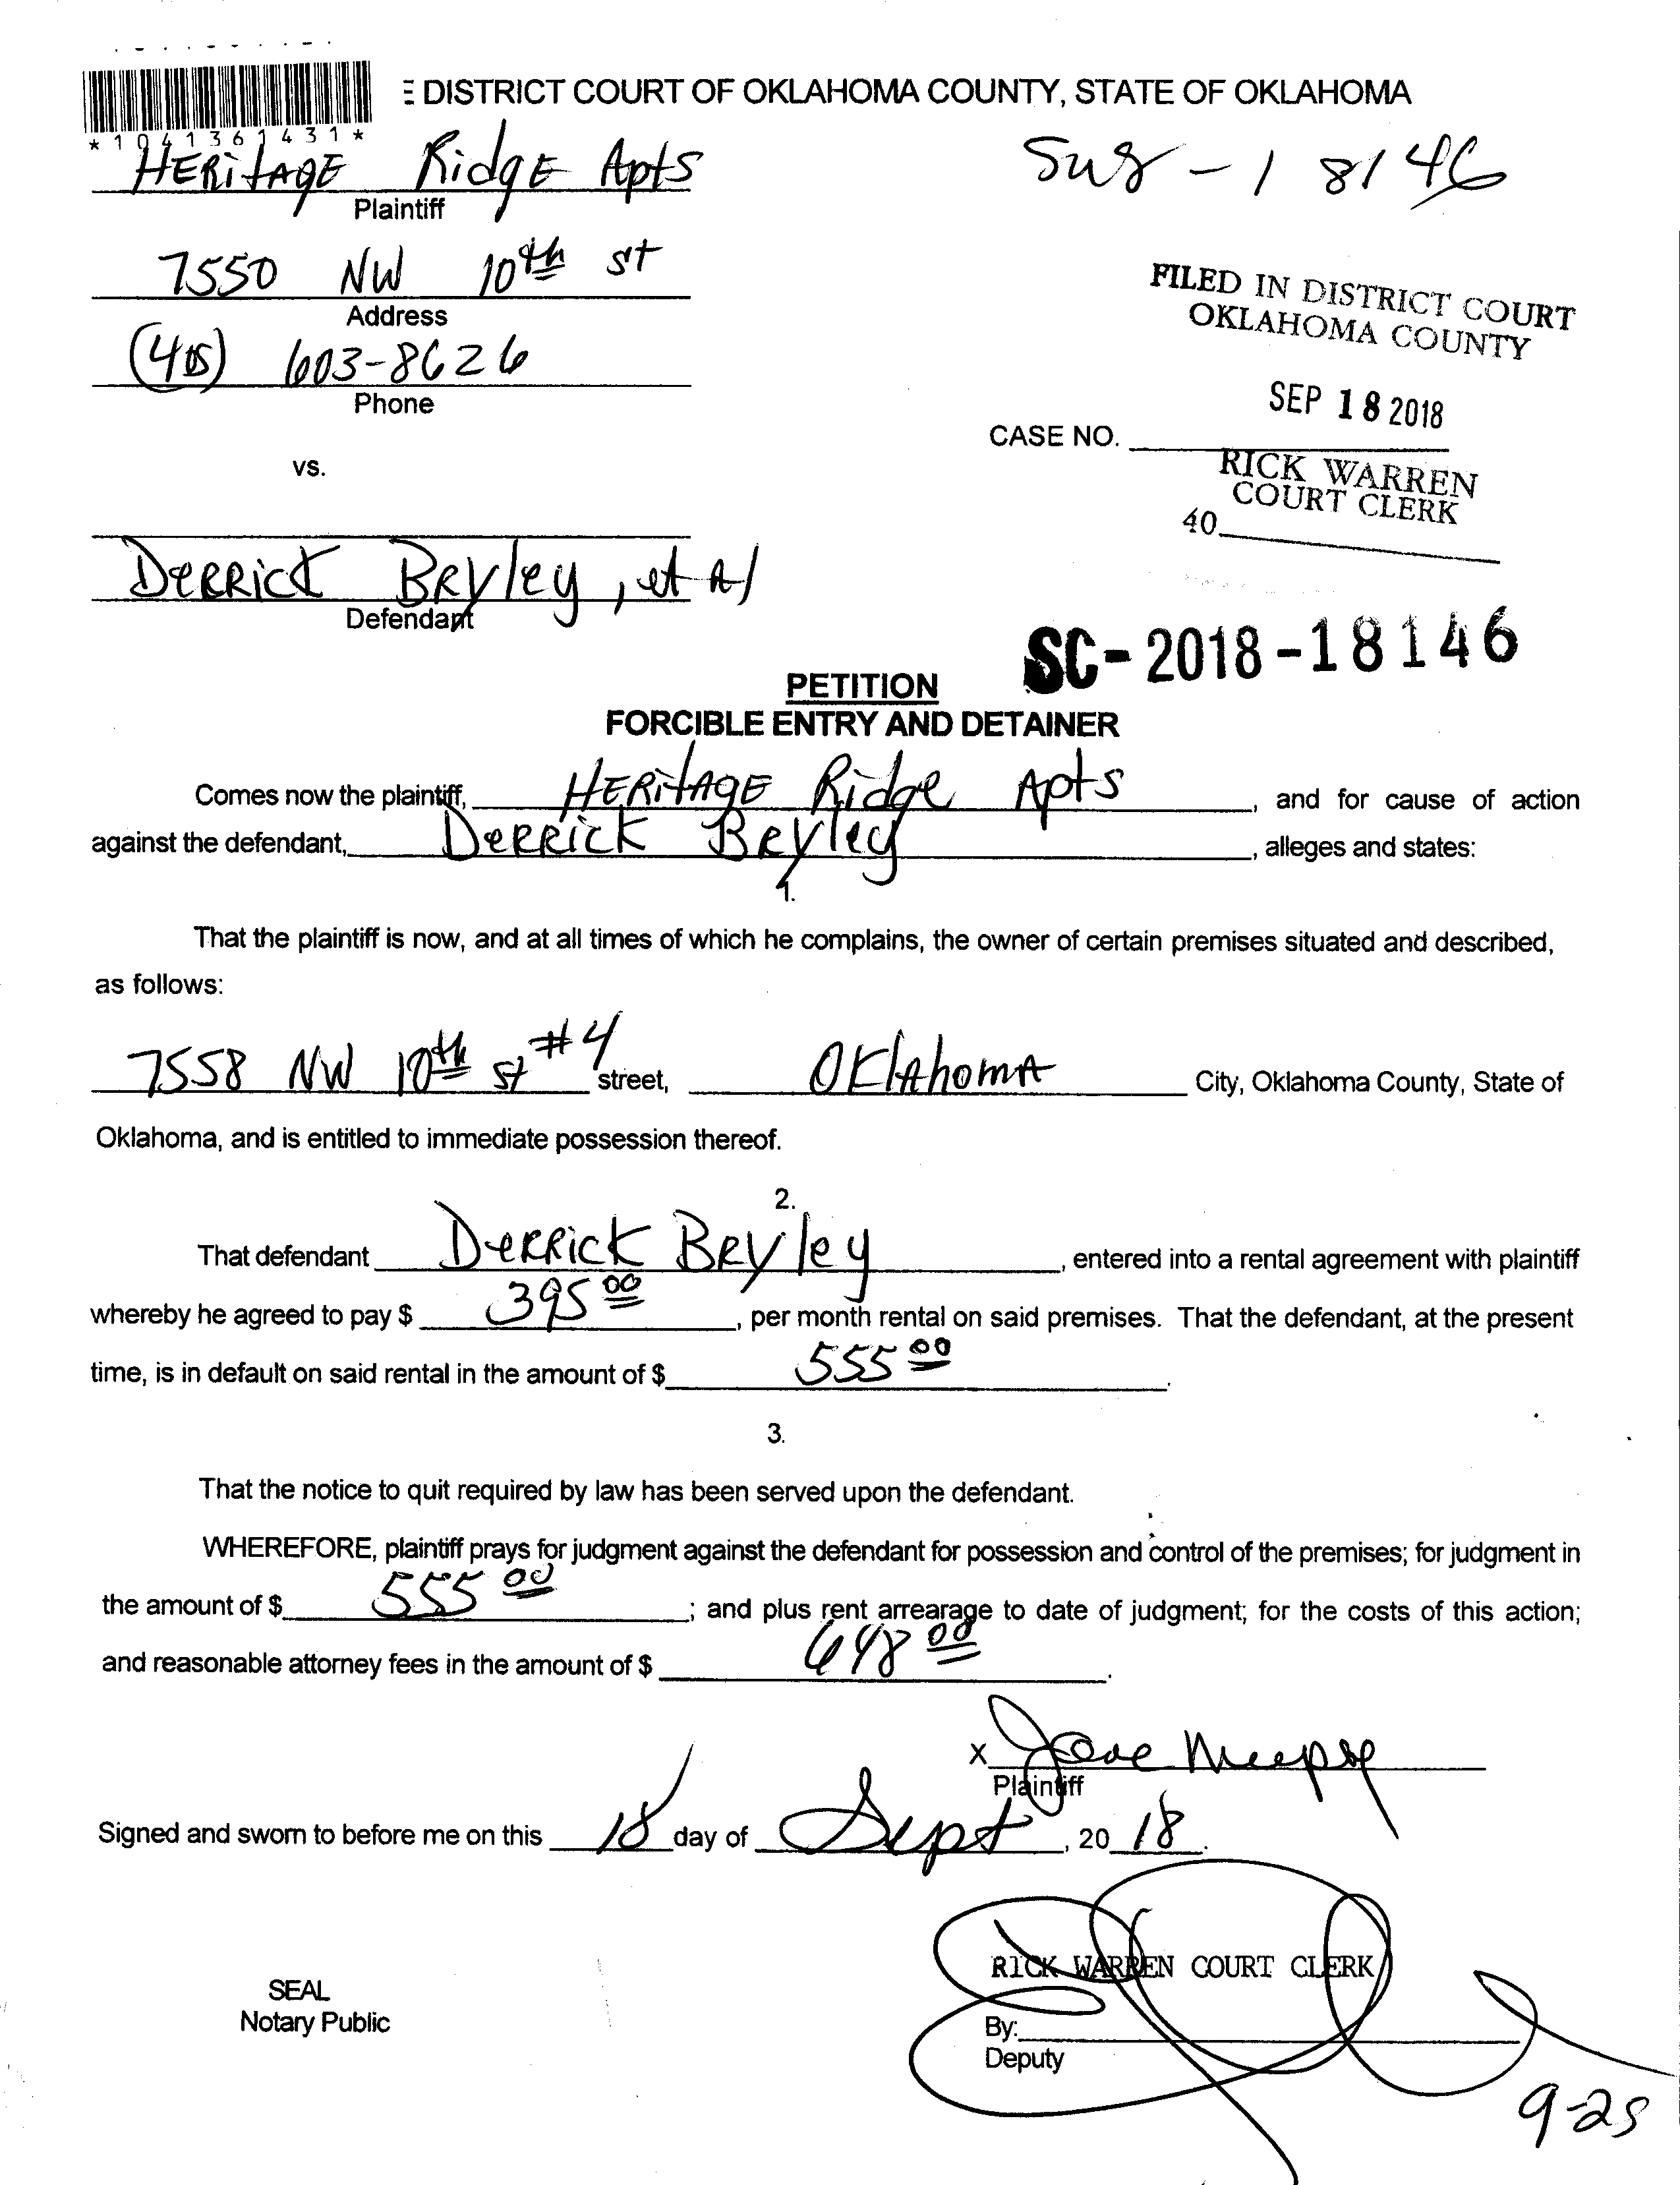 E DISTRICT COURT OF OKLAHOMA COUNTY, STATE OF OKLAHOMA
* 1 0 4 1 3 6 1 4 3 1 *
HERitAGE Ridge Apts
Plaintiff
- 18146
7550 NW 10th st
Address
FILED IN DISTRICT COURT
OKLAHOMA COUNTY
(405) 603-8626
Phone
SEP 18 2018
CASE NO.
RICK WARREN
COURT CLERK
40
vs.
DERRick BRyley, et Al
Defendant
SC-2018-18146
PETITION
FORCIBLE ENTRY AND DETAINER
Comes now the plaintiff, HERitAGE Ridge Apts, and for cause of action
against the defendant, DERRick BRyley, alleges and states:
1.
That the plaintiff is now, and at all times of which he complains, the owner of certain premises situated and described,
as follows:
7558 NW 10th st #4 street, OKlAhomA City, Oklahoma County, State of
Oklahoma, and is entitled to immediate possession thereof.
2.
That defendant DERRick BRyley, entered into a rental agreement with plaintiff
whereby he agreed to pay $ 395 00, per month rental on said premises. That the defendant, at the present
time, is in default on said rental in the amount of $ 555 00.
3.
That the notice to quit required by law has been served upon the defendant.
WHEREFORE, plaintiff prays for judgment against the defendant for possession and control of the premises; for judgment in
the amount of $ 555 00; and plus rent arrearage to date of judgment; for the costs of this action;
and reasonable attorney fees in the amount of $ 648 00.
X
Plaintiff
Signed and sworn to before me on this 18 day of Sept, 20 18.
RICK WARREN COURT CLERK
SEAL
Notary Public
By:
Deputy
9-25